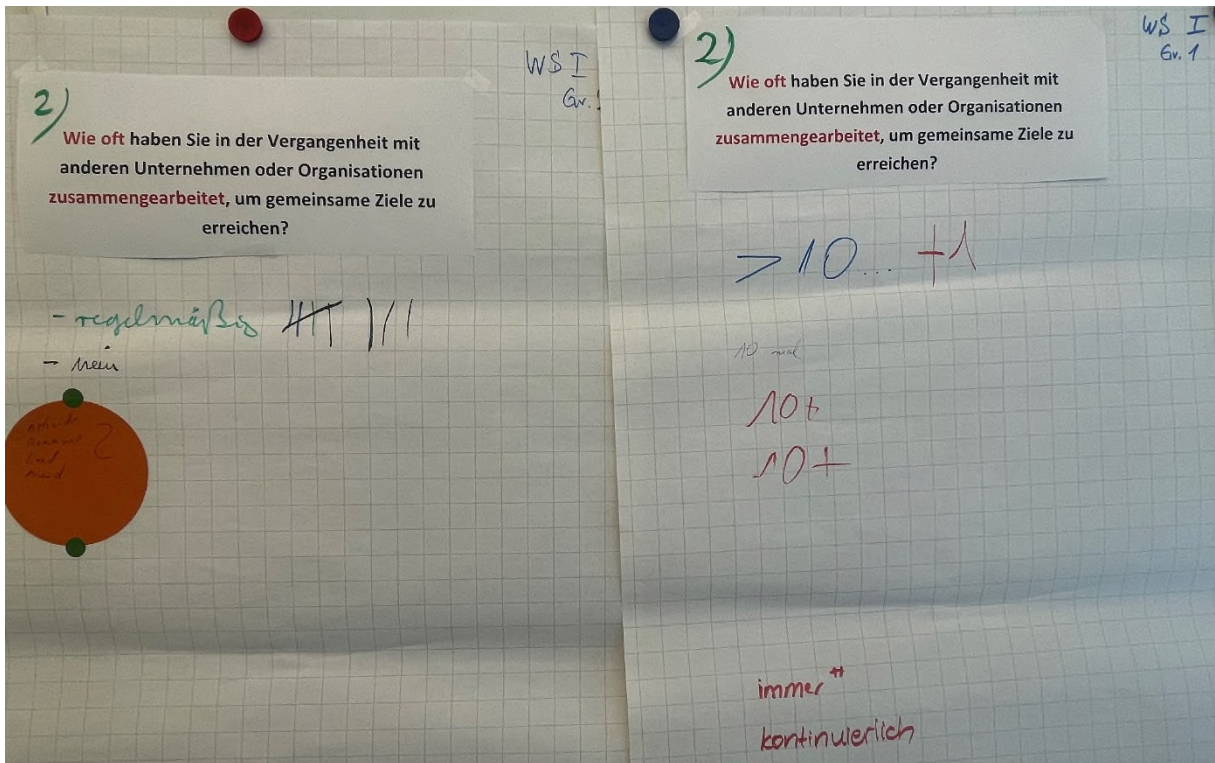 WS I
Gr.
2)
Wie oft haben Sie in der Vergangenheit mit
anderen Unternehmen oder Organisationen
zusammengearbeitet, um gemeinsame Ziele zu
erreichen?
- regelmäßig
- nein
WS I
Gr. 1
2)
Wie oft haben Sie in der Vergangenheit mit
anderen Unternehmen oder Organisationen
zusammengearbeitet, um gemeinsame Ziele zu
erreichen?
>10... +1
10 mal
10+
10+
immer
kontinuierlich